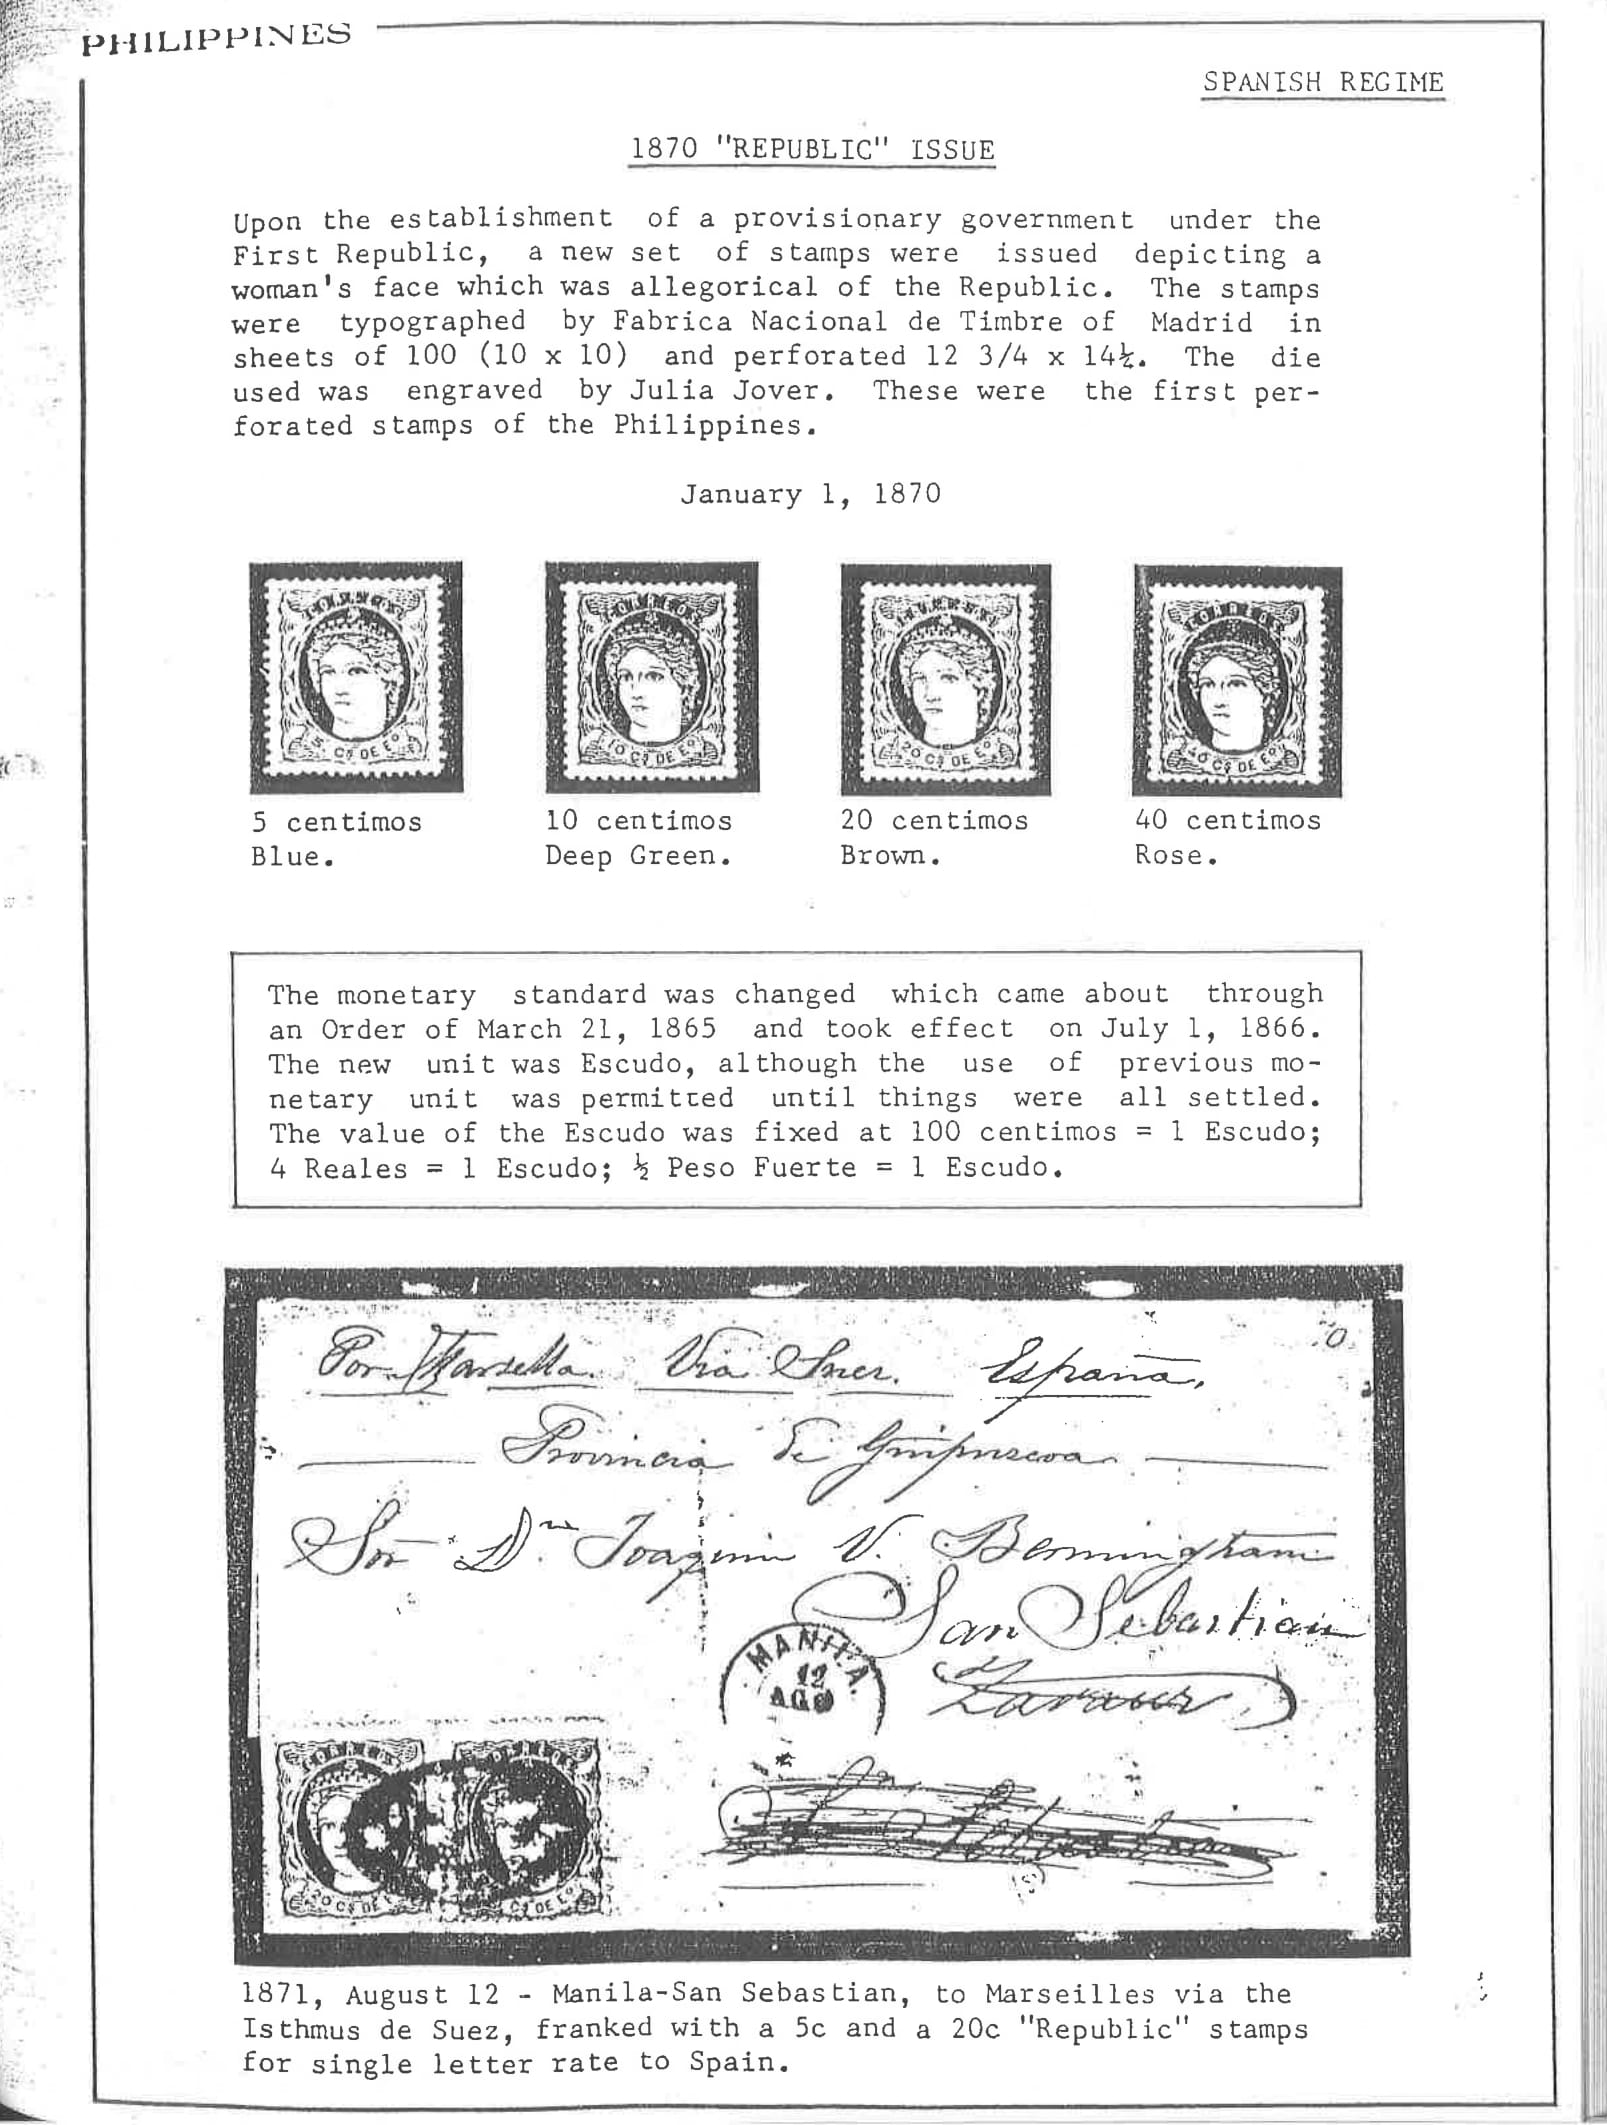 PHILIPPINES
SPANISH REGIME
1870 "REPUBLIC" ISSUE
Upon the establishment of a provisionary government under the
First Republic, a new set of stamps were issued depicting a
woman's face which was allegorical of the Republic. The stamps
were typographed by Fabrica Nacional de Timbre of Madrid in
sheets of 100 (10 x 10) and perforated 12 3/4 x 14¼. The die
used was engraved by Julia Jover. These were the first per-
forated stamps of the Philippines.
January 1, 1870
CORREOS CORREOS CORREOS CORREOS
5 Cs DE Eo 10 Cs DE Eo 20 Cs DE Eo 40 Cs DE Eo
5 centimos 10 centimos 20 centimos 40 centimos
Blue. Deep Green. Brown. Rose.
The monetary standard was changed which came about through
an Order of March 21, 1865 and took effect on July 1, 1866.
The new unit was Escudo, although the use of previous mo-
netary unit was permitted until things were all settled.
The value of the Escudo was fixed at 100 centimos = 1 Escudo;
4 Reales = 1 Escudo; ½ Peso Fuerte = 1 Escudo.
Por Marsella. Via Suez. España,
Provincia de Guipuscoa
Sor Dn Joaquin V. Bermingham
San Sebastian
MANILA
12
AGO
CORREOS CORREOS
20 Cs DE Cs DE Eo
1871, August 12 - Manila-San Sebastian, to Marseilles via the
Isthmus de Suez, franked with a 5c and a 20c "Republic" stamps
for single letter rate to Spain.